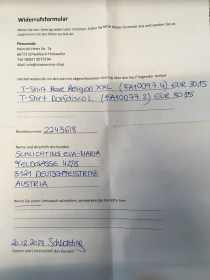 Widerrufsformular
Wenn Sie den Vertrag widerrufen möchten, füllen Sie bitte dieses Formular aus und senden Sie es
zusammen mit der Ware zurück an
Heinrich Hertz Str. 7a
66773 Schwalbach Hülzweiler
Hiermit widerrufe ich den von mir abgeschlossenen Vertrag über den Kauf folgender Artikel:
T-Shirt Rave Religion XXL (FA10097.4) EUR 30,15
T-Shirt L (FA10077.2) EUR 30,15
Bestellnummer 2243618
Name und Anschrift des Kunden
SCHLICHTING EVA-MARIA
FELDGASSE 42/8
8121 DEUTSCHFEISTRITZ
AUSTRIA
Wenn Sie einen Umtausch wünschen, vermerken Sie dies bitte hier:
20.12.2023 Schlichting
Datum und Unterschrift des Kunden